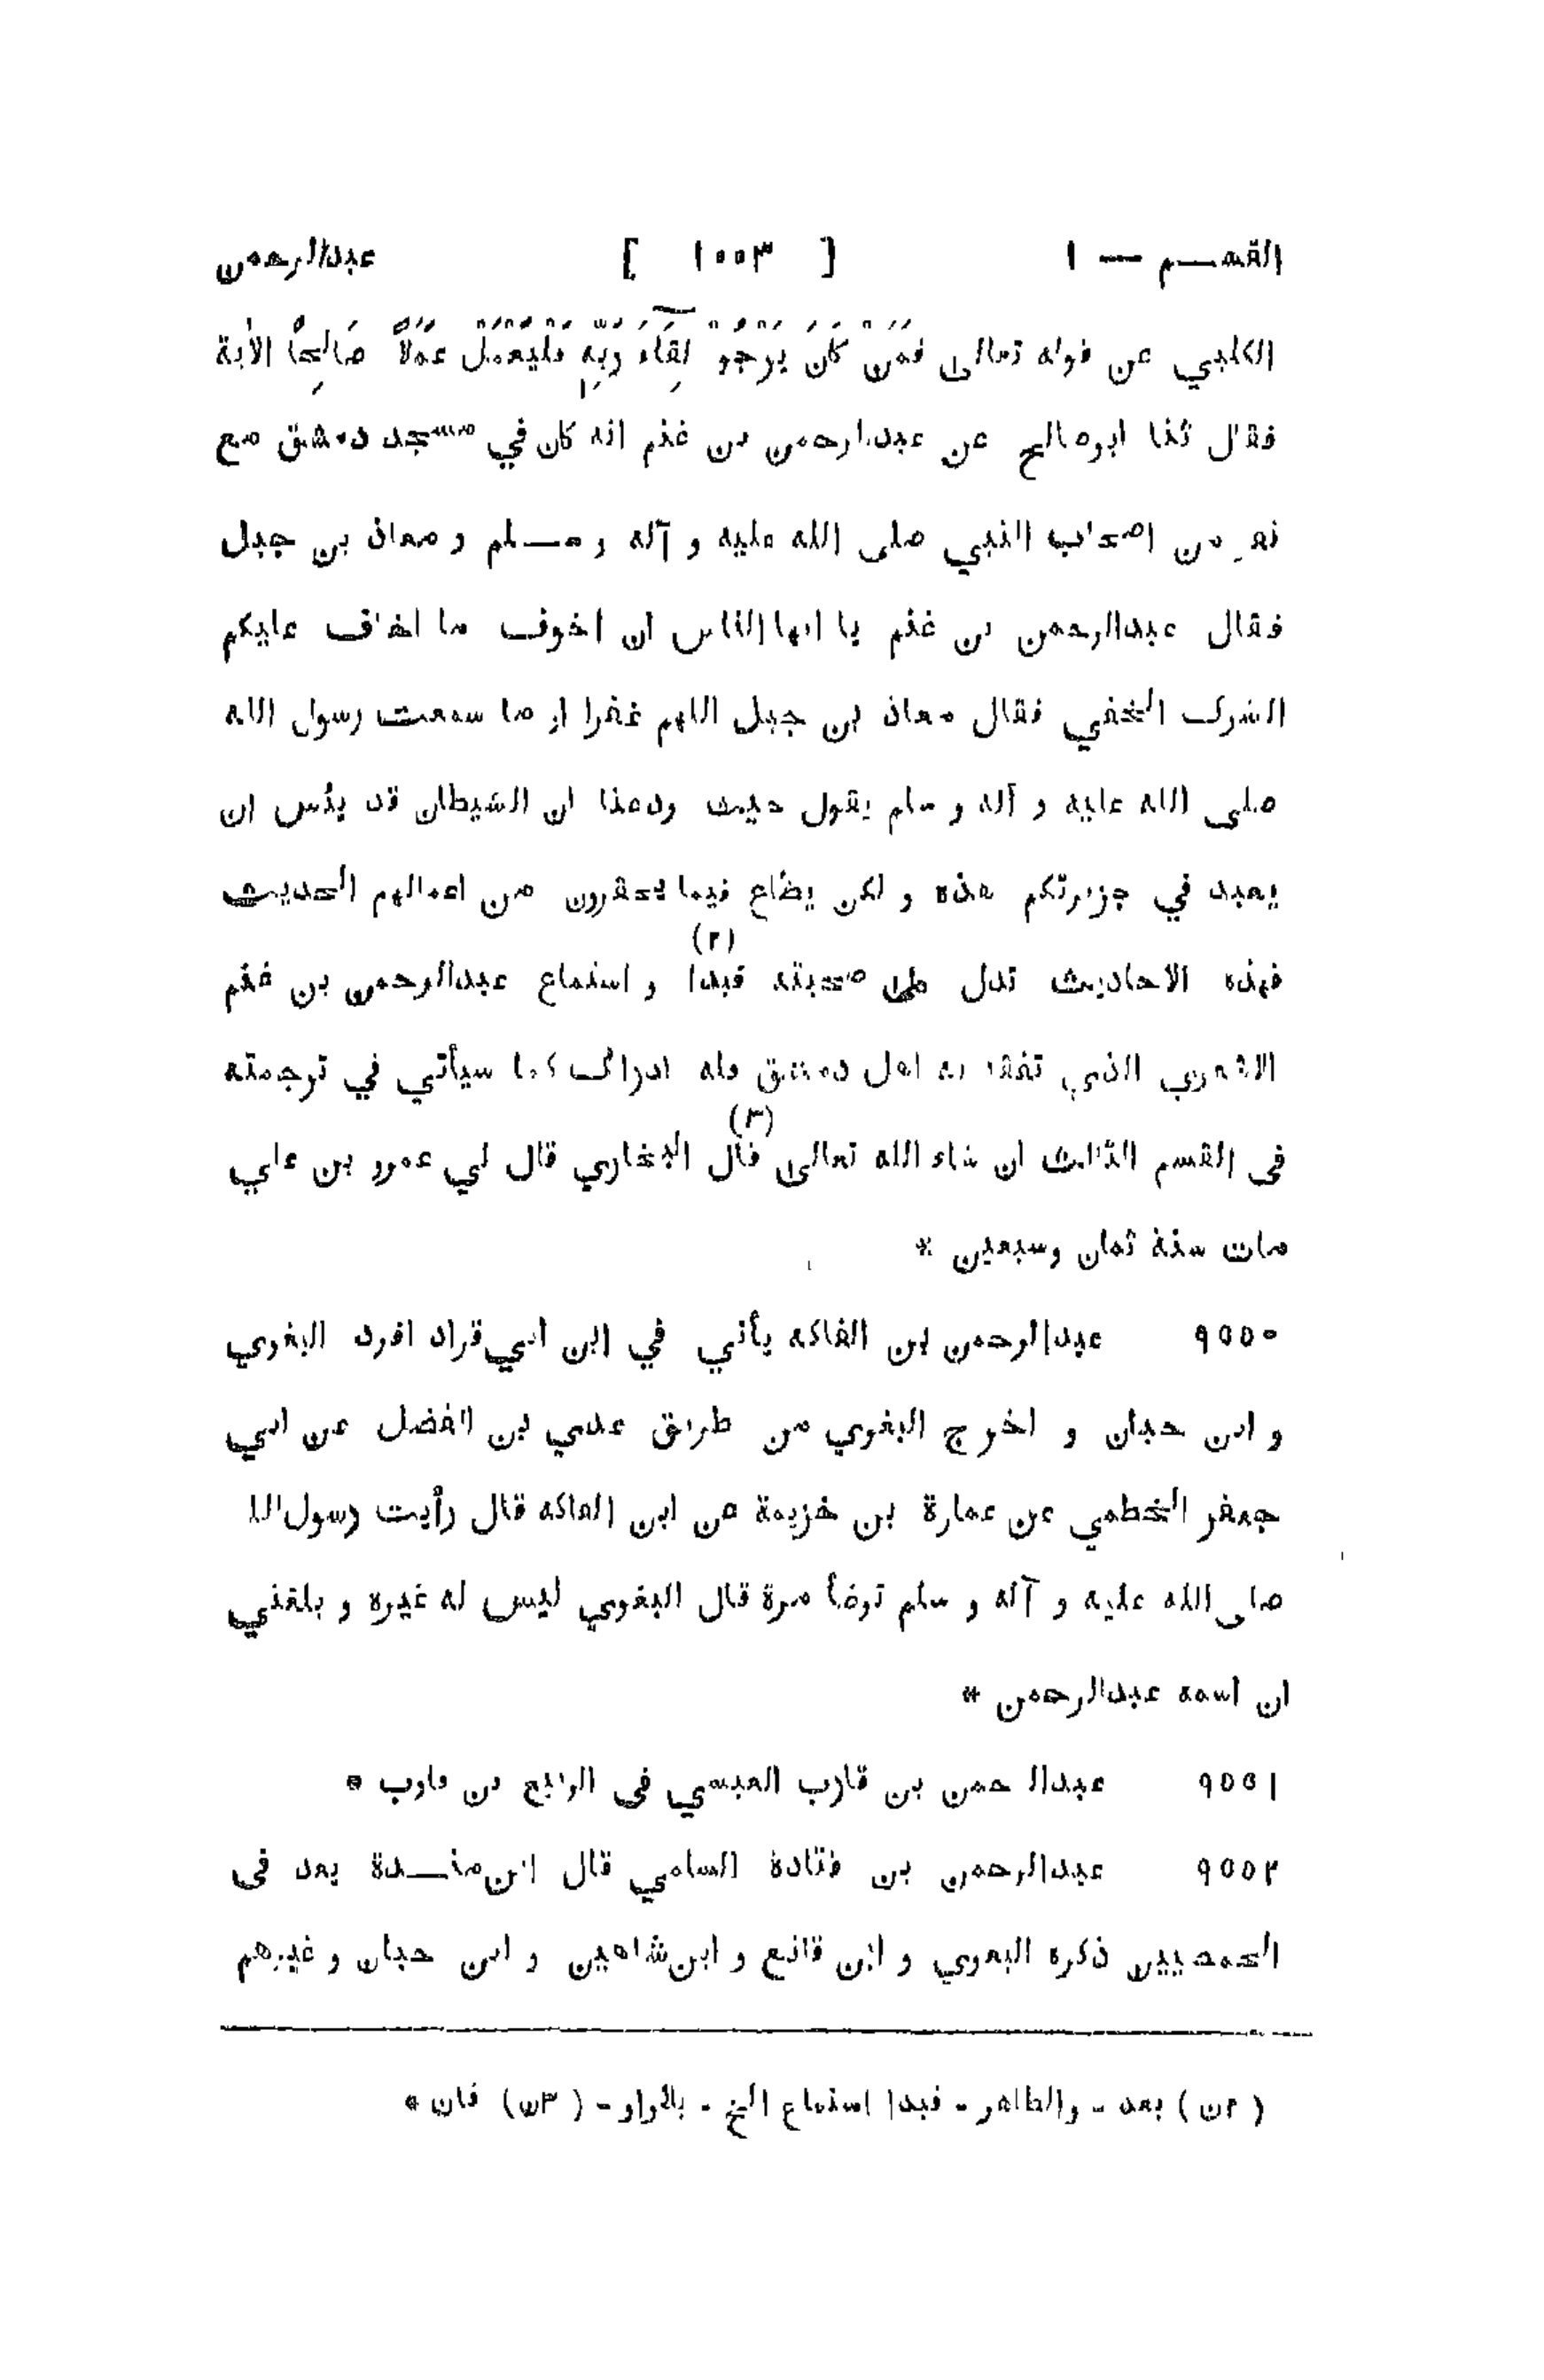 القســم — ١ [ ١٠٠٣ ] عبدالرحمن
الكلبي عن قوله تعالى فَمَنْ كَانَ يَرْجُوْ لِقَآءَ رَبِّهٖ فَلْيَعْمَلْ عَمَلًا صَالِحًا الآية
فقال ثنا ابوصالح عن عبدالرحمن بن غنم انه كان في مسجد دمشق مع
نفر من اصحاب النبي صلى الله عليه و آله و ســلم و معاذ بن جبل
فقال عبدالرحمن بن غنم يا ايها الناس ان اخوف ما اخاف عليكم
الشرك الخفي فقال معاذ بن جبل اللهم غفرا او ما سمعت رسول الله
صلى الله عليه و آله و سلم يقول حيث ودعنا ان الشيطان قد يئس ان
يعبد في جزيرتكم هذه و لكن يطاع فيما تحقرون من اعمالهم الحديث
فهذه الاحاديث تدل على صحبته فبدا (٢) و استماع عبدالرحمن بن غنم
الاشعري الذي تفقه به اهل دمشق وله ادراك كما سيأتي في ترجمته
فى القسم الثالث ان شاء الله تعالى قال (٣) البخاري قال لي عمرو بن علي
مات سنة ثمان وسبعين *
٩٥٥٠ عبدالرحمن بن الفاكه يأتي في ابن ابي قراد افرد البغوي
و ابن حبان و اخرج البغوي من طريق عدي بن الفضل عن ابي
جعفر الخطمي عن عمارة بن خزيمة عن ابن الفاكه قال رأيت رسول الله
صلى الله عليه و آله و سلم توضأ مرة قال البغوي ليس له غيره و بلغني
ان اسمه عبدالرحمن *
٩٥٥١ عبدالرحمن بن قارب العبسي فى الربيع بن قارب *
٩٥٥٢ عبدالرحمن بن قتادة السلمي قال ابن منــدة يعد فى
الحمصيين ذكره البغوي و ابن قانع و ابن شاهين و ابن حبان و غيرهم
( ٢ن ) بعد - والظاهر - فبدا استماع الخ - بالواو - ( ٣ن ) فان *